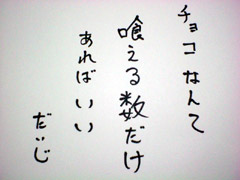 チョコなんて
喰える数だけ
あればいい
だいじ